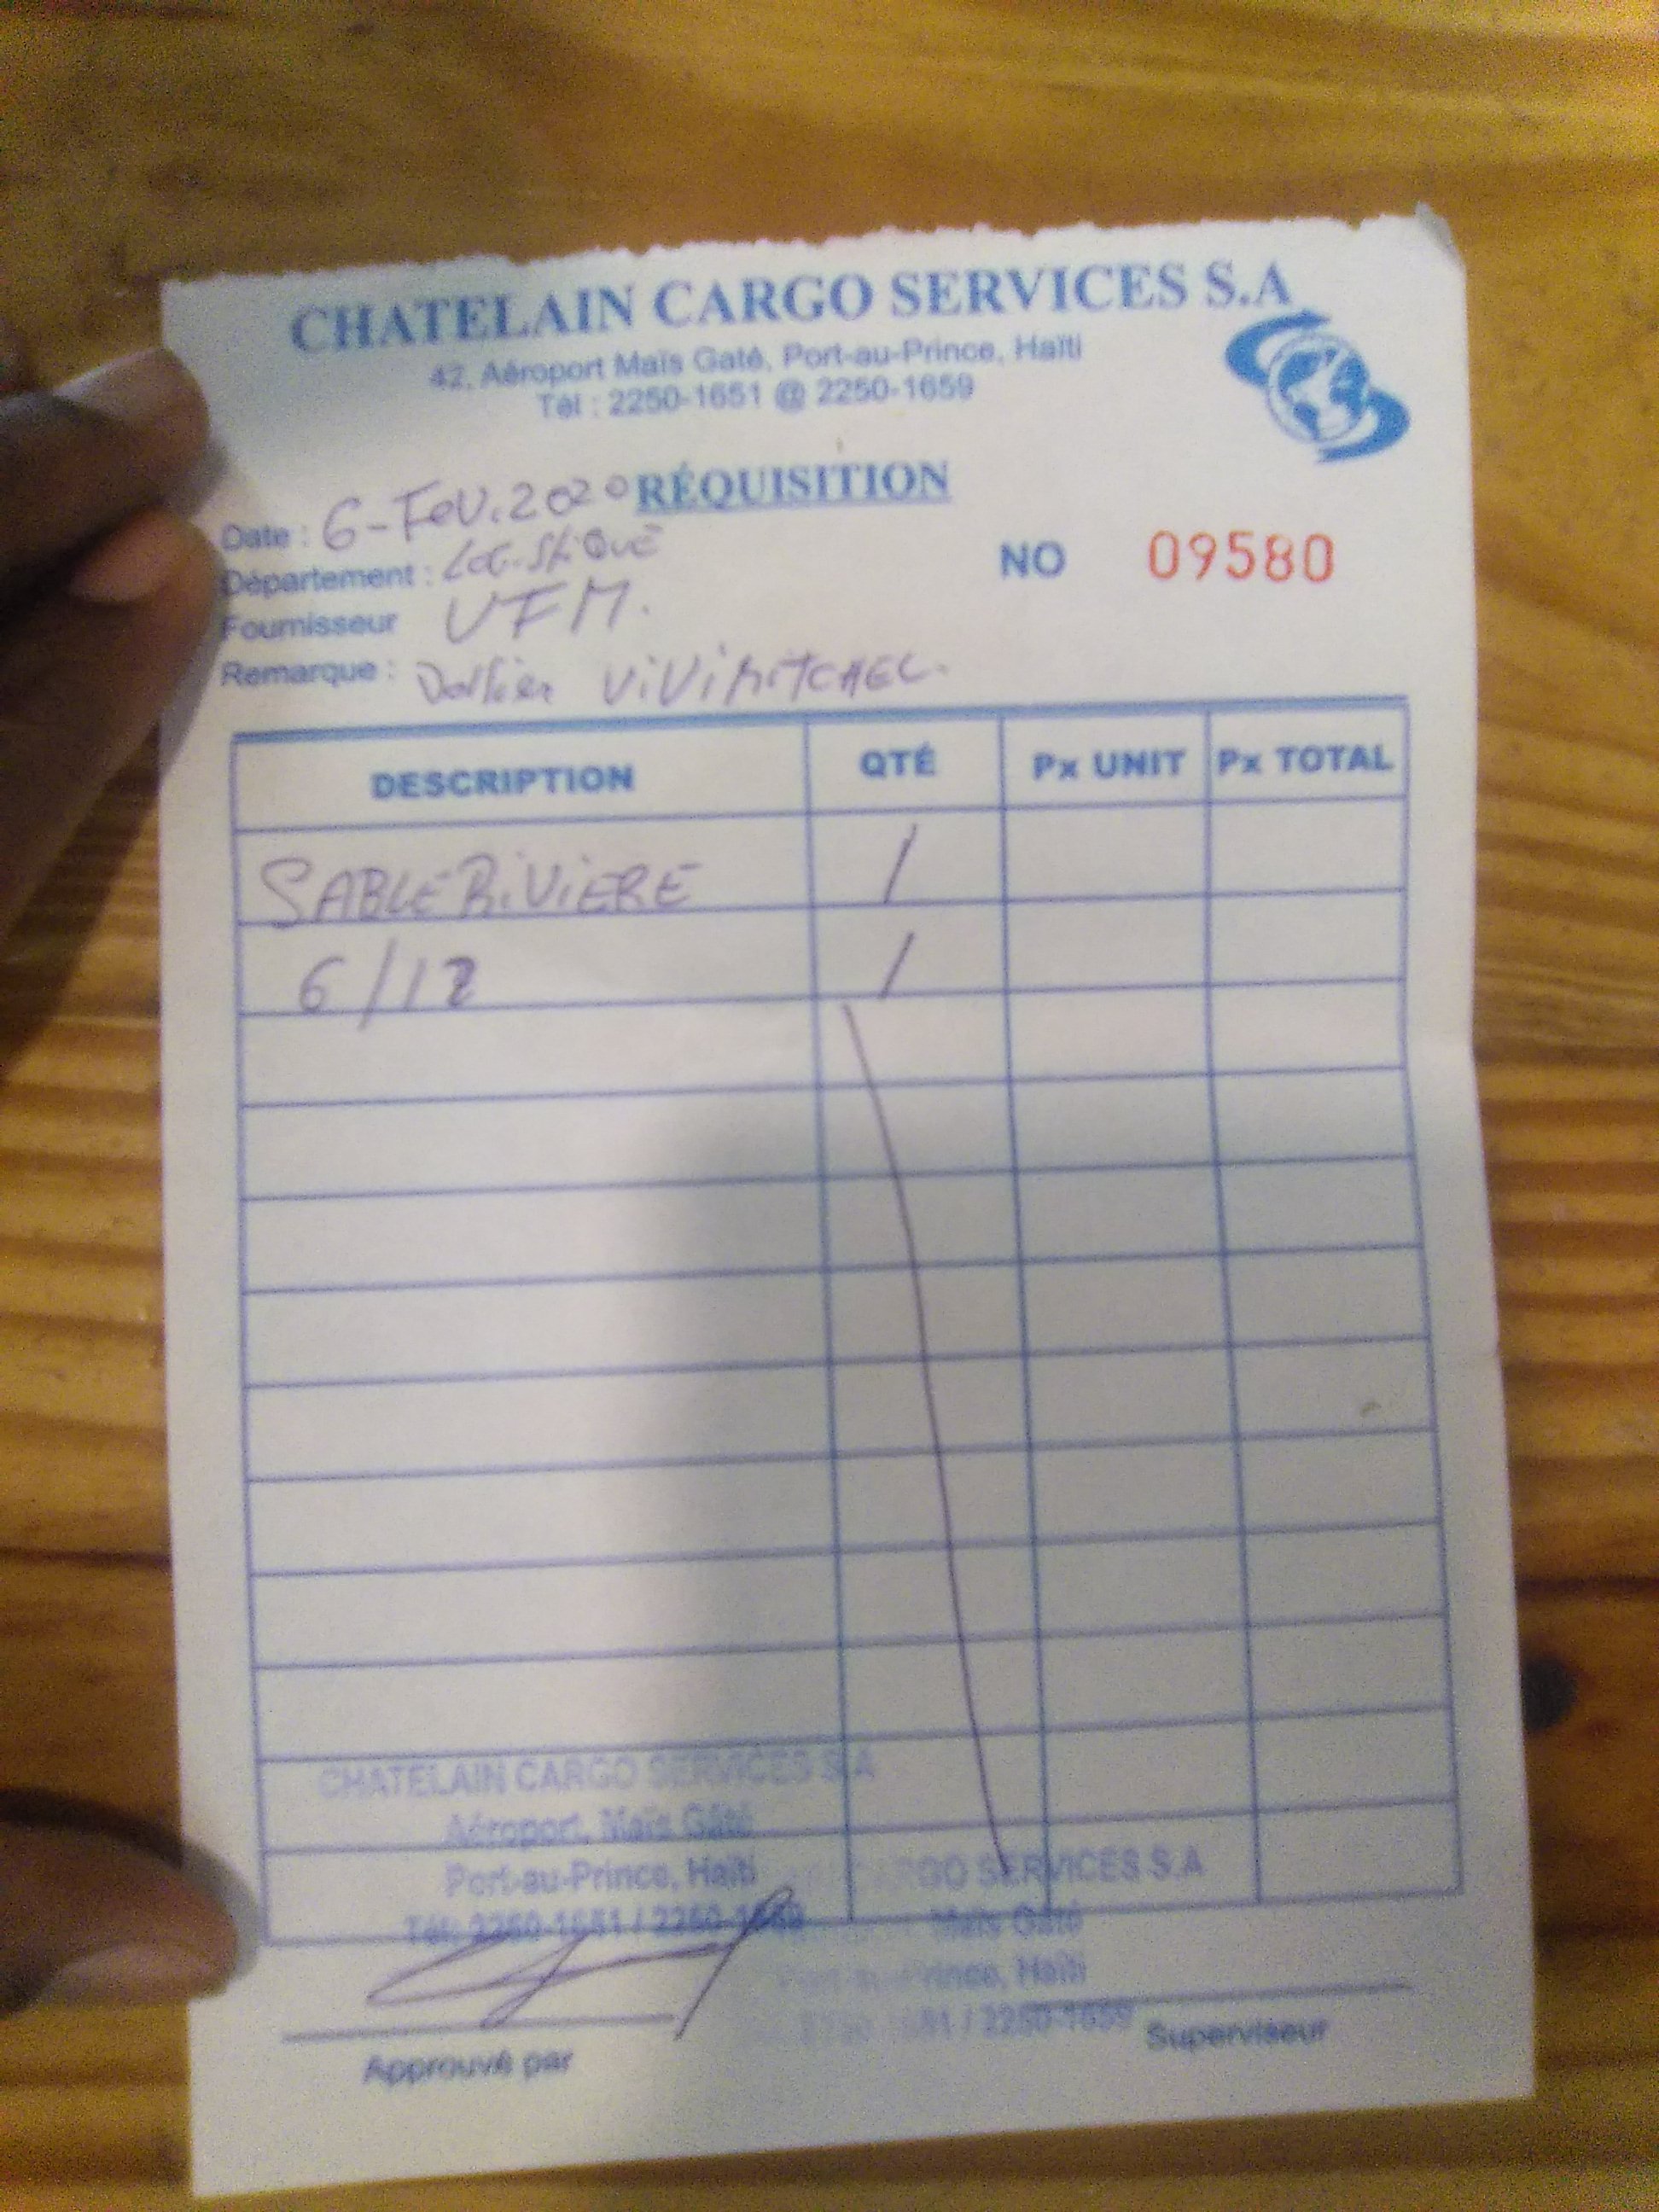 CHATELAIN CARGO SERVICES S.A
42, Aéroport Maïs Gaté, Port-au-Prince, Haïti
Tél : 2250-1651 @ 2250-1659
RÉQUISITION
Date : 6-Fev.2020
NO 09580
Département :
Fournisseur UFM.
Remarque : ViVi MITCHAEL.
DESCRIPTION QTÉ Px UNIT Px TOTAL
SABLE RiViERE 1
6/12 1
CHATELAIN CARGO SERVICES S.A
Aéroport, Maïs Gâté
Port-au-Prince, Haïti
Tél: 2250-1651 / 2250-1659
RGO SERVICES S.A
Maïs Gâté
rince, Haïti
51 / 2250-1659
Approuvé par
Superviseur